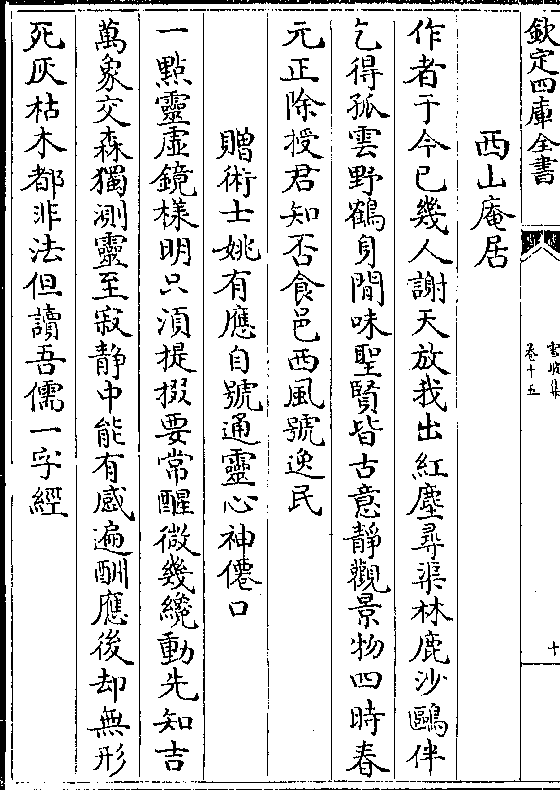 欽定四庫全書
雪坡集
卷十五
十
西山庵居
作者于今已幾人謝天放我出紅塵尋渠林鹿沙鷗伴
乞得孤雲野鶴身閒味聖賢皆古意靜觀景物四時春
元正除授君知否食邑西風號逸民
贈術士姚有應自號通靈心神僊口
一點靈虛鏡様明只湏提掇要常醒微幾纔動先知吉
萬象交森獨測靈至寂靜中能有感遍酬應後却無形
死灰枯木都非法但讀吾儒一字經